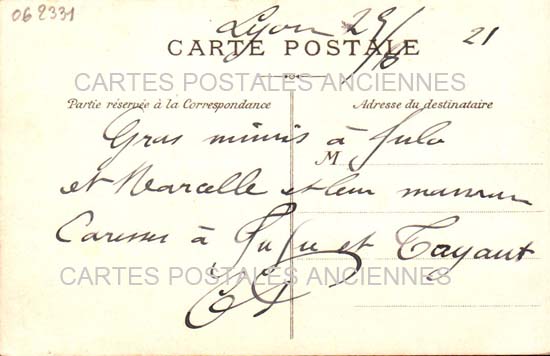 062331
Lyon 29/6 21
CARTE POSTALE
CARTES POSTALES ANCIENNES
Partie réservée à la Correspondance
Adresse du destinataire
Gros mimis à Julo
M
et Marcelle et leur maman
Caresses à et Tayaut
CARTES POSTALES ANCIENNES